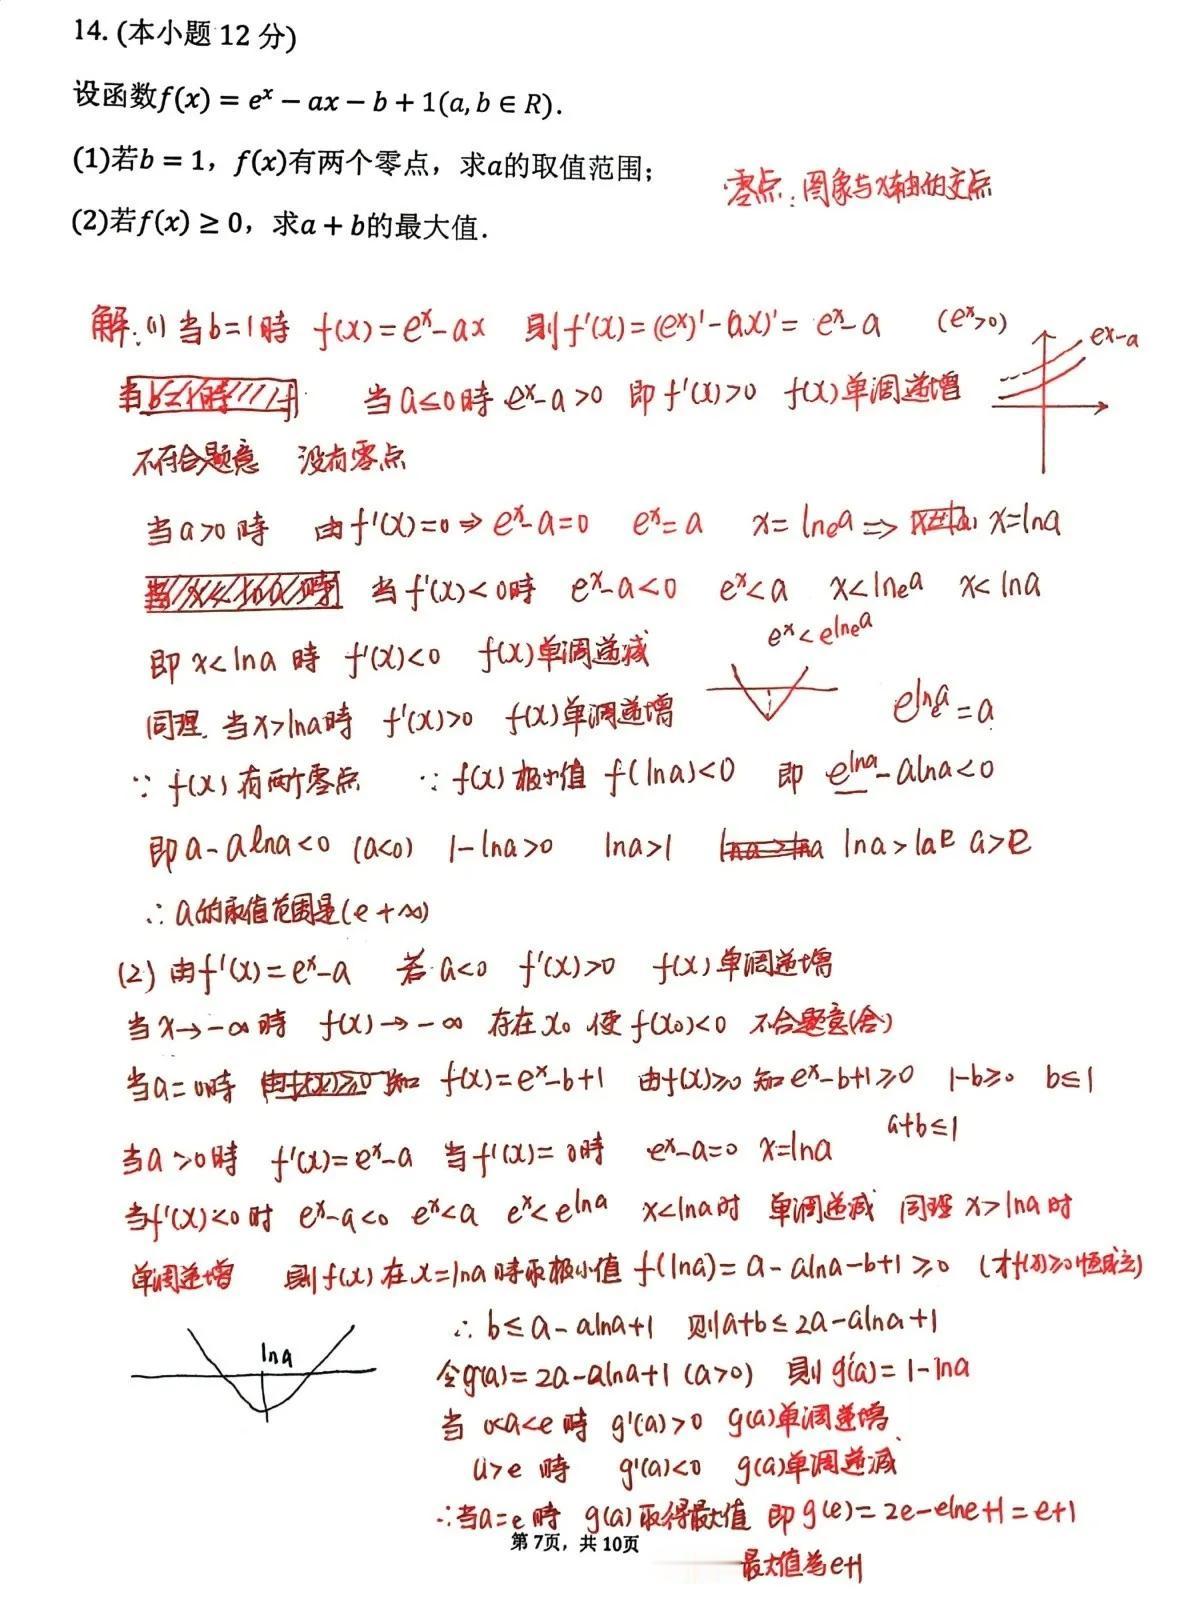 14. (本小题 12 分)
设函数f(x) = eˣ − ax − b + 1(a, b ∈ R).
(1)若b = 1，f(x)有两个零点，求a的取值范围；
零点：图象与x轴的交点
(2)若f(x) ≥ 0，求a + b的最大值.
解:(1) 当b=1時 f(x)=eˣ-ax 則f'(x)=(eˣ)'-(ax)'= eˣ-a (eˣ>0)
eˣ-a
当 当a≤0時 eˣ-a>0 即f'(x)>0 f(x)单调递增
不符合题意 没有零点
当a>0時 由f'(x)=0⇒eˣ-a=0 eˣ=a x=lnₑa⇒ x=lna
当f'(x)<0時 eˣ-a<0 eˣ<a x<lnₑa x<lna
eˣ<e^lnₑa
即x<lna時 f'(x)<0 f(x)单调递减
同理.当x>lna時 f'(x)>0 f(x)单调递增
e^lnₑa=a
∵f(x)有两个零点 ∵f(x)极小值 f(lna)<0 即 e^lna-alna<0
即a-alna<0 (a<0) 1-lna>0 lna>1 lna>lne a>e
∴a的取值范围是(e +∞)
(2)由f'(x)=eˣ-a 若a<0 f'(x)>0 f(x)单调递增
当x→-∞時 f(x)→-∞ 存在x₀使f(x₀)<0 不合题意(舍)
当a=0時 知 f(x)=eˣ-b+1 由f(x)≥0知eˣ-b+1≥0 1-b≥0 b≤1
a+b≤1
当a>0時 f'(x)=eˣ-a 当f'(x)=0時 eˣ-a=0 x=lna
当f'(x)<0时 eˣ-a<0 eˣ<a eˣ<e^lna x<lna时 单调递减 同理x>lna时
单调递增 則f(x)在x=lna時取极小值f(lna)=a-alna-b+1≥0 (才f(x)≥0恒成立)
∴b≤a-alna+1 则a+b≤2a-alna+1
lna
令g(a)=2a-alna+1 (a>0) 則g'(a)=1-lna
当0<a<e時 g'(a)>0 g(a)单调递增
a>e時 g'(a)<0 g(a)单调递减
∴当a=e時 g(a)取得最大值 即g(e)=2e-elne+1=e+1
第 7页，共 10页
最大值为e+1